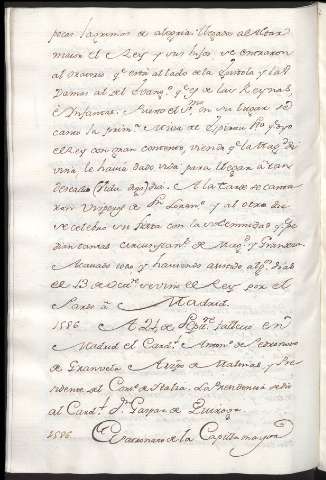 pocas lagrimas de alegria: llegado al Altar
maior el Rey y sus hijos se entraron
al oratorio q.e está al lado de la Epistola y las
Damas al del Evang.o q.e es de las Reynas,
è Infantas. Puesto el S.mo en su lugar se
canto la prim.a Missa de Spiritu S.to oyo
el Rey con gran contento, viendo q.e la Mag.d di
vina le havia dado vida para llegar à tan
deseado dia. A la tarde se canta
ron Visperas de S.n Loren.o y al otro dia
se celebro su fiesta con la solemnidad q.e pe
dian tantas circunstan.s de Mag.d y Grandeza
Acavado todo y haviendo asistido alg.s dias
el 13 de Oct.re se vino el Rey por el
Pardo à Madrid.
1586. A 21 de Sept.re fallecio en
Madrid el Card.l Anton.o Perenoto
de Granvela Arzpo de Malinas, y Pre
sidente del Cons.o de Italia. La Presidencia se dio
al Card.l D.n Gaspar de Quiroga.
1586. Quaternario de la Capilla mayor